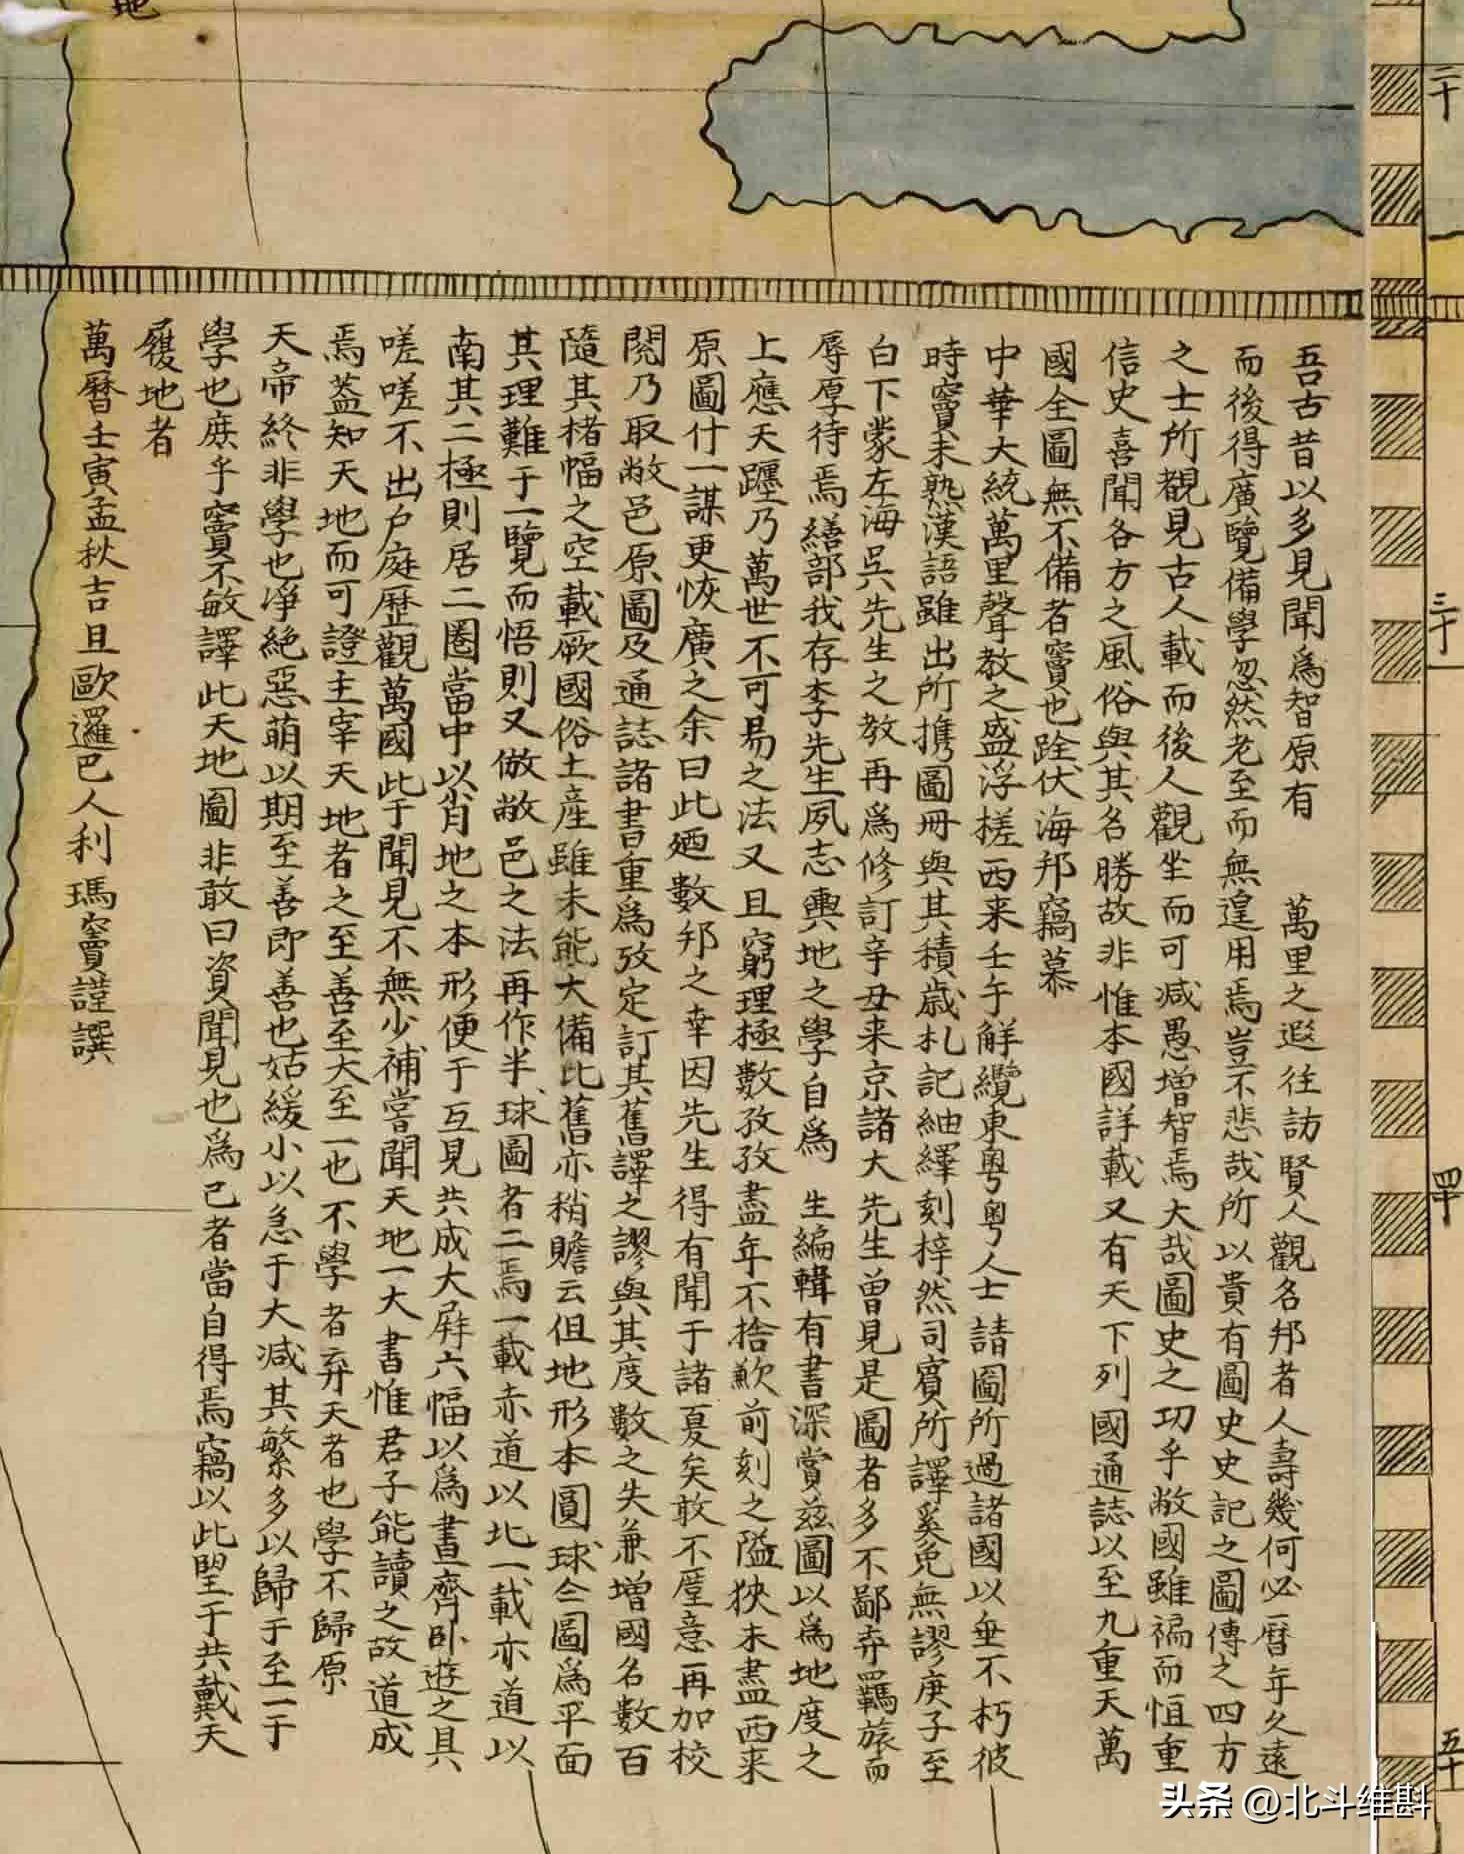 地
二十
三十
四十
五十
吾古昔以多見聞爲智原有 萬里之遐往訪賢人觀名邦者人壽幾何必曆年久遠
而後得廣覽備學忽然老至而無遑用焉豈不悲哉所以貴有圖史史記之圖傳之四方
之士所覩見古人載而後人觀坐而可減愚增智焉大哉圖史之功乎敝國雖褊而恒重
信史喜聞各方之風俗與其名勝故非惟本國詳載又有天下列國通誌以至九重天萬
國全圖無不備者竇也跧伏海邦竊慕
中華大統萬里聲教之盛浮槎西来壬午解纜東粵粵人士請圖所過諸國以垂不朽彼
時竇未熟漢語雖出所携圖冊與其積歲札記紬繹刻梓然司賓所譯奚免無謬庚子至
白下蒙左海吳先生之教再爲修訂辛丑来京諸大先生曾見是圖者多不鄙弃羈旅而
辱厚待焉繕部我存李先生夙志輿地之學自爲 生編輯有書深賞兹圖以爲地度之
上應天躔乃萬世不可易之法又且窮理極數孜孜盡年不捨歉前刻之隘狹未盡西来
原圖什一謀更恢廣之余曰此廼數邦之幸因先生得有聞于諸夏矣敢不厪意再加校
閱乃取敝邑原圖及通誌諸書重爲攷定訂其舊譯之謬與其度數之失兼增國名數百
隨其楮幅之空載厥國俗土産雖未能大備比舊亦稍贍云但地形本圓球仝圖爲平面
其理難于一覽而悟則又倣敝邑之法再作半球圖者二焉一載赤道以北一載亦道以
南其二極則居二圈當中以肖地之本形便于互見共成大屏六幅以爲書齊卧遊之具
嗟嗟不出户庭歷觀萬國此于聞見不無少補嘗聞天地一大書惟君子能讀之故道成
焉葢知天地而可證主宰天地者之至善至大至一也不學者弃天者也學不歸原
天帝終非學也淨絶惡萌以期至善即善也姑緩小以急于大减其繁多以歸于至一于
學也庶乎竇不敏譯此天地圖非敢曰資聞見也爲己者當自得焉竊以此望于共戴天
履地者
萬曆壬寅孟秋吉旦歐邏巴人利瑪竇謹譔
头条 @北斗维斟